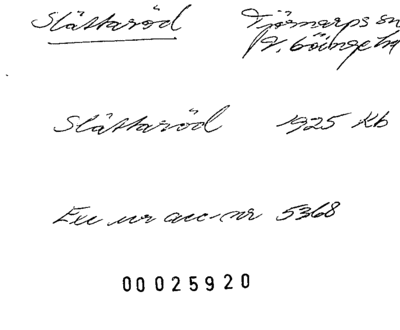 Slättaröd Tjörnarps sn
V. Göinge hd
Slättaröd 1925 Kb
Exc ur acc-nr 5368
00025920